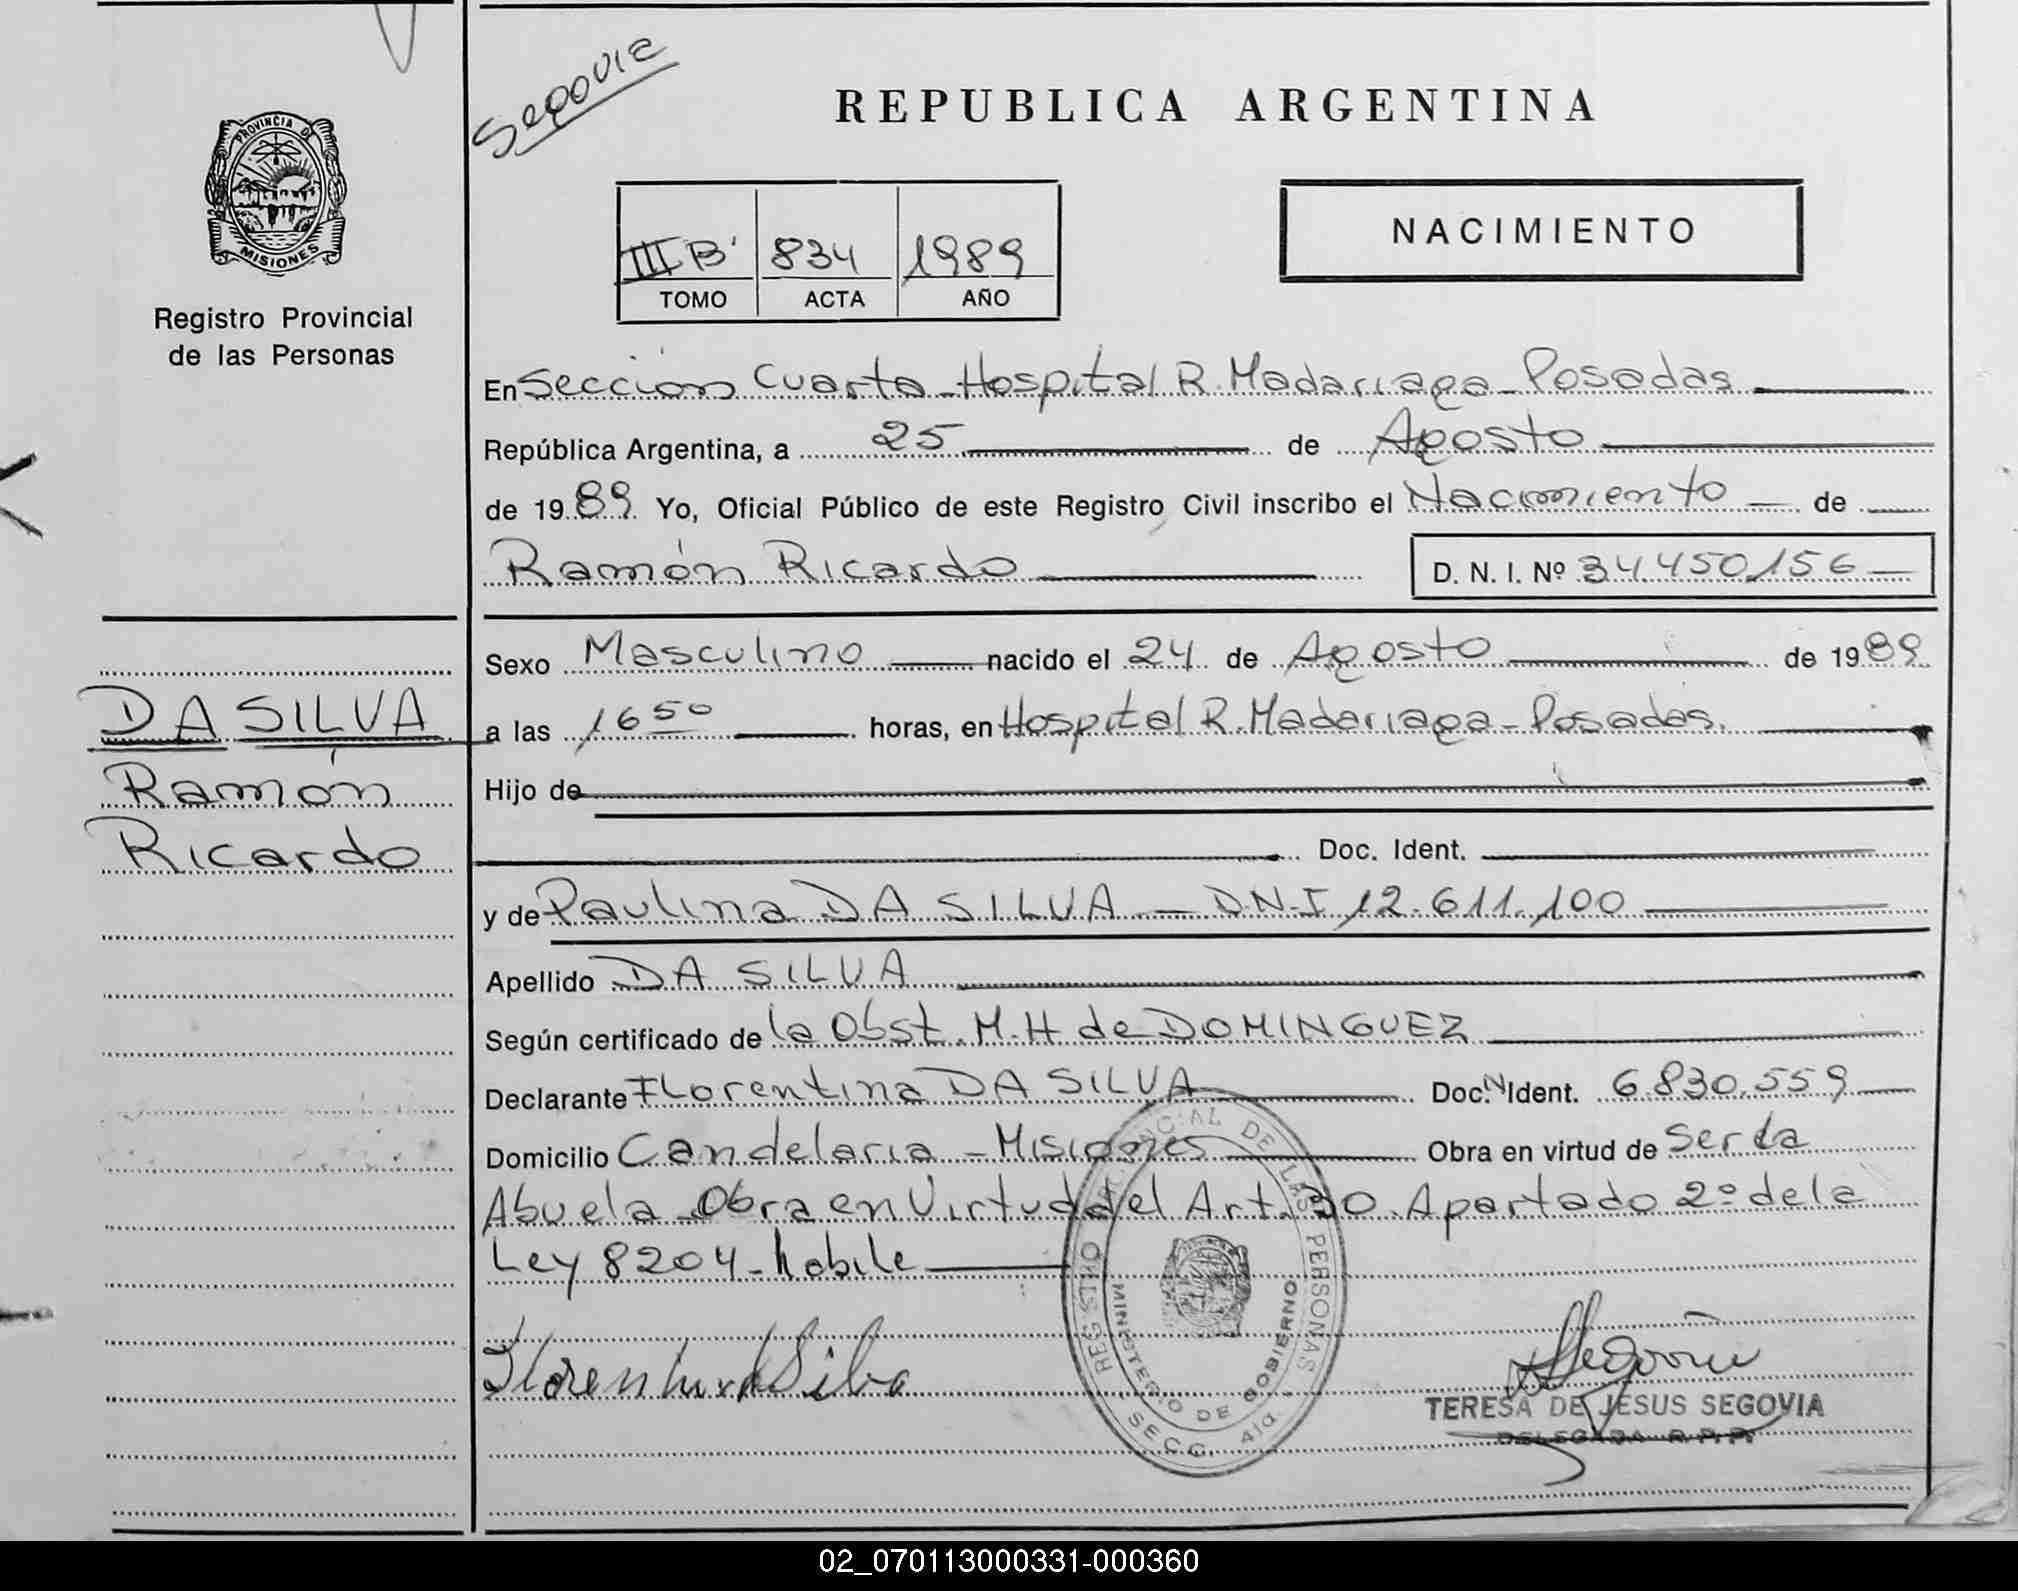 Segovia
REPUBLICA ARGENTINA
PROVINCIA DE
MISIONES
Registro Provincial
de las Personas
III B' 834 1989
TOMO ACTA AÑO
NACIMIENTO
En Sección Cuarta - Hospital R. Madariaga - Posadas
República Argentina, a 25 de Agosto
de 1989 Yo, Oficial Público de este Registro Civil inscribo el Nacimiento de
Ramón Ricardo D. N. I. Nº 34.450.156
Sexo Masculino nacido el 24 de Agosto de 1989
DA SILVA
Ramón
Ricardo
a las 16 50 horas, en Hospital R. Madariaga - Posadas.
Hijo de
Doc. Ident.
y de Paulina DA SILVA - D.N.I 12.611.100
Apellido DA SILVA
Según certificado de la Obst. M. H de DOMINGUEZ
Declarante Florentina DA SILVA Doc. Ident. 6.830.559
Domicilio Candelaria - Misiones Obra en virtud de Ser la
Abuela Obra en Virtud del Art. 30 Apartado 2º de la
Ley 8204 - 
Florentina da Silva
REGISTRO PROVINCIAL DE LAS PERSONAS
MINISTERIO DE GOBIERNO
SECC. 4ta.
Segovia
TERESA DE JESUS SEGOVIA
DELEGADA R. P. P.
02_070113000331-000360